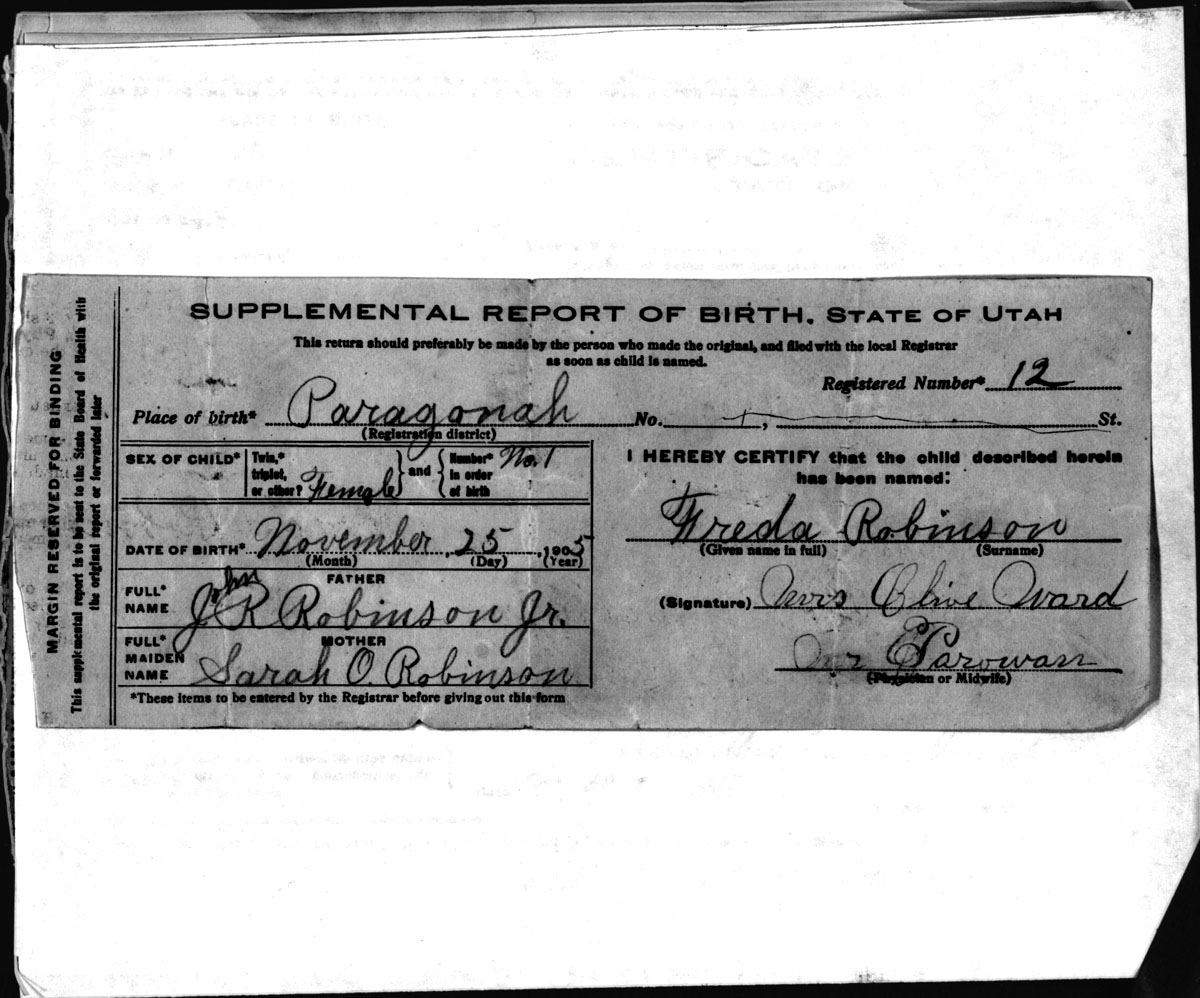 SUPPLEMENTAL REPORT OF BIRTH, STATE OF UTAH
This return should preferably be made by the person who made the original, and filed with the local Registrar
as soon as child is named.
Registered Number* 12
Place of birth* Paragonah No. St.
(Registration district)
SEX OF CHILD* Twin,* triplet, or other? Female and Number* in order of birth No. 1
DATE OF BIRTH* November, 25, 1905
(Month) (Day) (Year)
FATHER
FULL* NAME John R Robinson Jr.
MOTHER
FULL* MAIDEN NAME Sarah O. Robinson
*These items to be entered by the Registrar before giving out this form
I HEREBY CERTIFY that the child described herein
has been named:
Freda Robinson
(Given name in full) (Surname)
(Signature) Mrs Olive Ward
Parowan
(Physician or Midwife)
MARGIN RESERVED FOR BINDING
This supplemental report is to be sent to the State Board of Health with
the original report or forwarded later